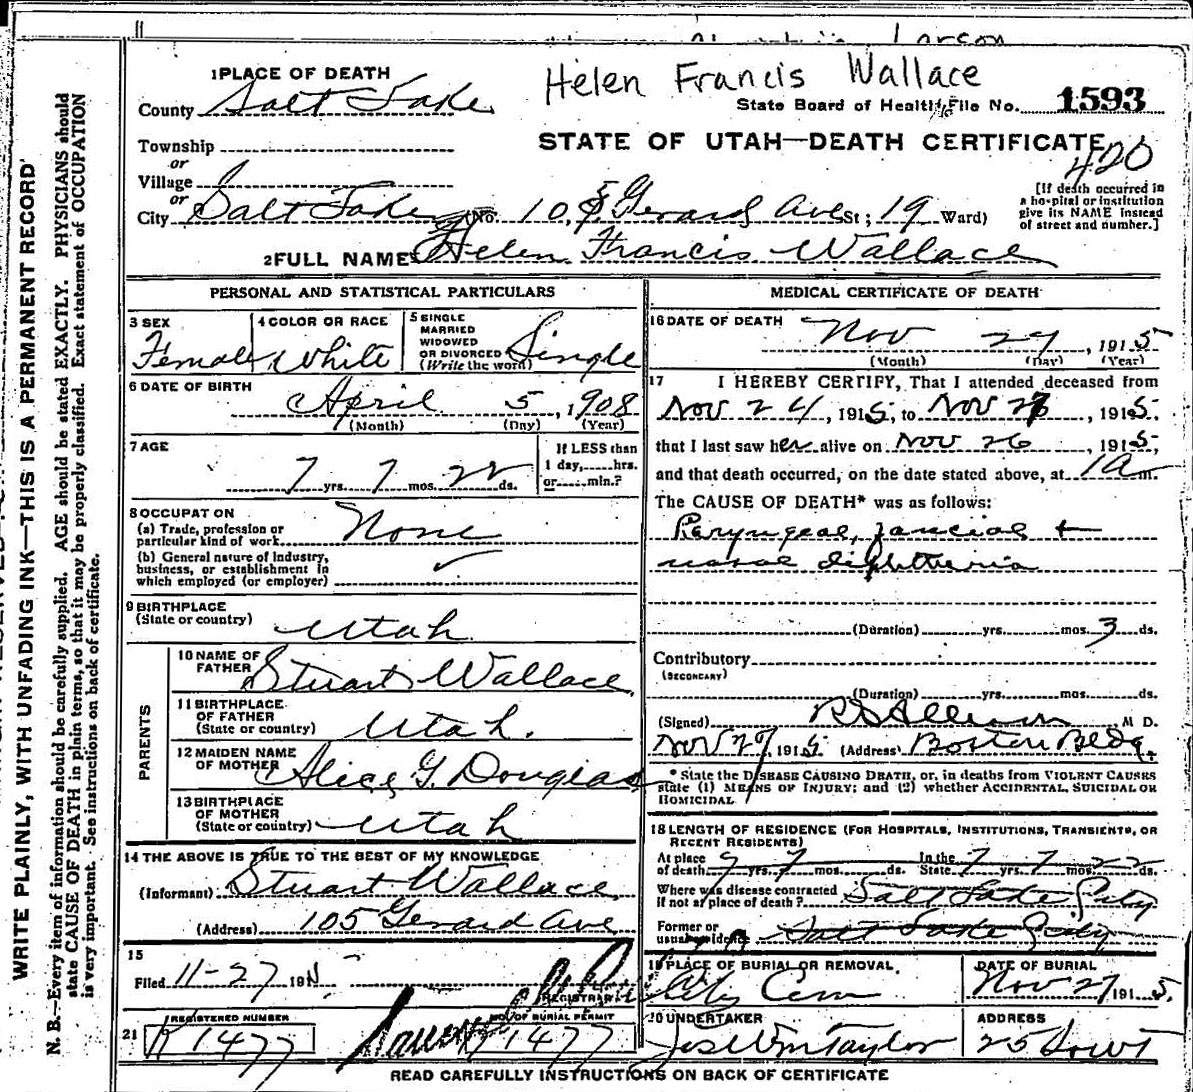 Larson
Helen Francis Wallace
1 PLACE OF DEATH
County Salt Lake
State Board of Health File No. 1593
STATE OF UTAH—DEATH CERTIFICATE
420
Township
or
Village
or
City Salt Lake (No. 105 Gerard Ave St; 19 Ward)
[If death occurred in
a hospital or institution
give its NAME instead
of street and number.]
2 FULL NAME Helen Francis Wallace
PERSONAL AND STATISTICAL PARTICULARS
3 SEX Female
4 COLOR OR RACE White
5 SINGLE
MARRIED
WIDOWED
OR DIVORCED
(Write the word) Single
6 DATE OF BIRTH
April 5, 1908
(Month) (Day) (Year)
7 AGE
7 yrs. 7 mos. 22 ds.
If LESS than
1 day,......hrs.
or......min.?
8 OCCUPATION
(a) Trade, profession or
particular kind of work None
(b) General nature of industry,
business, or establishment in
which employed (or employer) ✓
9 BIRTHPLACE
(State or country) Utah
PARENTS
10 NAME OF
FATHER Stuart Wallace
11 BIRTHPLACE
OF FATHER
(State or country) Utah.
12 MAIDEN NAME
OF MOTHER Alice G. Douglas
13 BIRTHPLACE
OF MOTHER
(State or country) Utah
14 THE ABOVE IS TRUE TO THE BEST OF MY KNOWLEDGE
(Informant) Stuart Wallace
(Address) 105 Gerard Ave
15
Filed 11-27 191
REGISTRAR
REGISTERED NUMBER
NO. OF BURIAL PERMIT
21 K 1477 1477
MEDICAL CERTIFICATE OF DEATH
16 DATE OF DEATH Nov 27, 1915
(Month) (Day) (Year)
17 I HEREBY CERTIFY, That I attended deceased from
Nov 24, 1915, to Nov 27, 1915.
that I last saw her alive on Nov 26, 1915,
and that death occurred, on the date stated above, at 1 a m.
The CAUSE OF DEATH* was as follows:
Laryngeal, faucial +
nasal diphtheria
(Duration) yrs. mos. 3 ds.
Contributory
(SECONDARY)
(Duration) yrs. mos. ds.
(Signed) M D.
Nov 27, 1915 (Address) Boston Bldg.
*State the DISEASE CAUSING DEATH, or, in deaths from VIOLENT CAUSES
state (1) MEANS OF INJURY; and (2) whether ACCIDENTAL, SUICIDAL OR
HOMICIDAL.
18 LENGTH OF RESIDENCE (FOR HOSPITALS, INSTITUTIONS, TRANSIENTS, OR
RECENT RESIDENTS)
At place
of death 7 yrs. mos. ds.
In the
State 7 yrs. 7 mos. 22 ds.
Where was disease contracted
if not at place of death? Salt Lake City
Former or
usual residence Salt Lake City
19 PLACE OF BURIAL OR REMOVAL
City Cem
DATE OF BURIAL
Nov 27 1915.
20 UNDERTAKER
Jos Wm Taylor
ADDRESS
25 So W T
READ CAREFULLY INSTRUCTIONS ON BACK OF CERTIFICATE
WRITE PLAINLY, WITH UNFADING INK—THIS IS A PERMANENT RECORD
N. B.—Every item of information should be carefully supplied. AGE should be stated EXACTLY. PHYSICIANS should
state CAUSE OF DEATH in plain terms, so that it may be properly classified. Exact statement of OCCUPATION
is very important. See instructions on back of certificate.